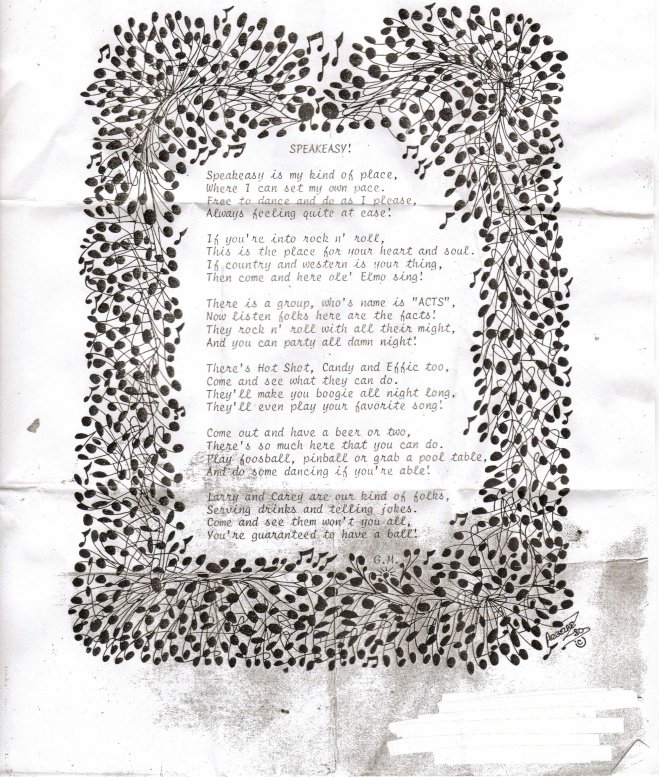 SPEAKEASY!
Speakeasy is my kind of place,
Where I can set my own pace.
Free to dance and do as I please,
Always feeling quite at ease!
If you're into rock n' roll,
This is the place for your heart and soul.
If country and western is your thing,
Then come and here ole' Elmo sing!
There is a group, who's name is "ACTS",
Now listen folks here are the facts!
They rock n' roll with all their might,
And you can party all damn night!
There's Hot Shot, Candy and Effic too,
Come and see what they can do.
They'll make you boogie all night long,
They'll even play your favorite song!
Come out and have a beer or two,
There's so much here that you can do.
Play foosball, pinball or grab a pool table,
And do some dancing if you're able!
Larry and Carey are our kind of folks,
Serving drinks and telling jokes.
Come and see them won't you all,
You're guaranteed to have a ball!
G.M.
©